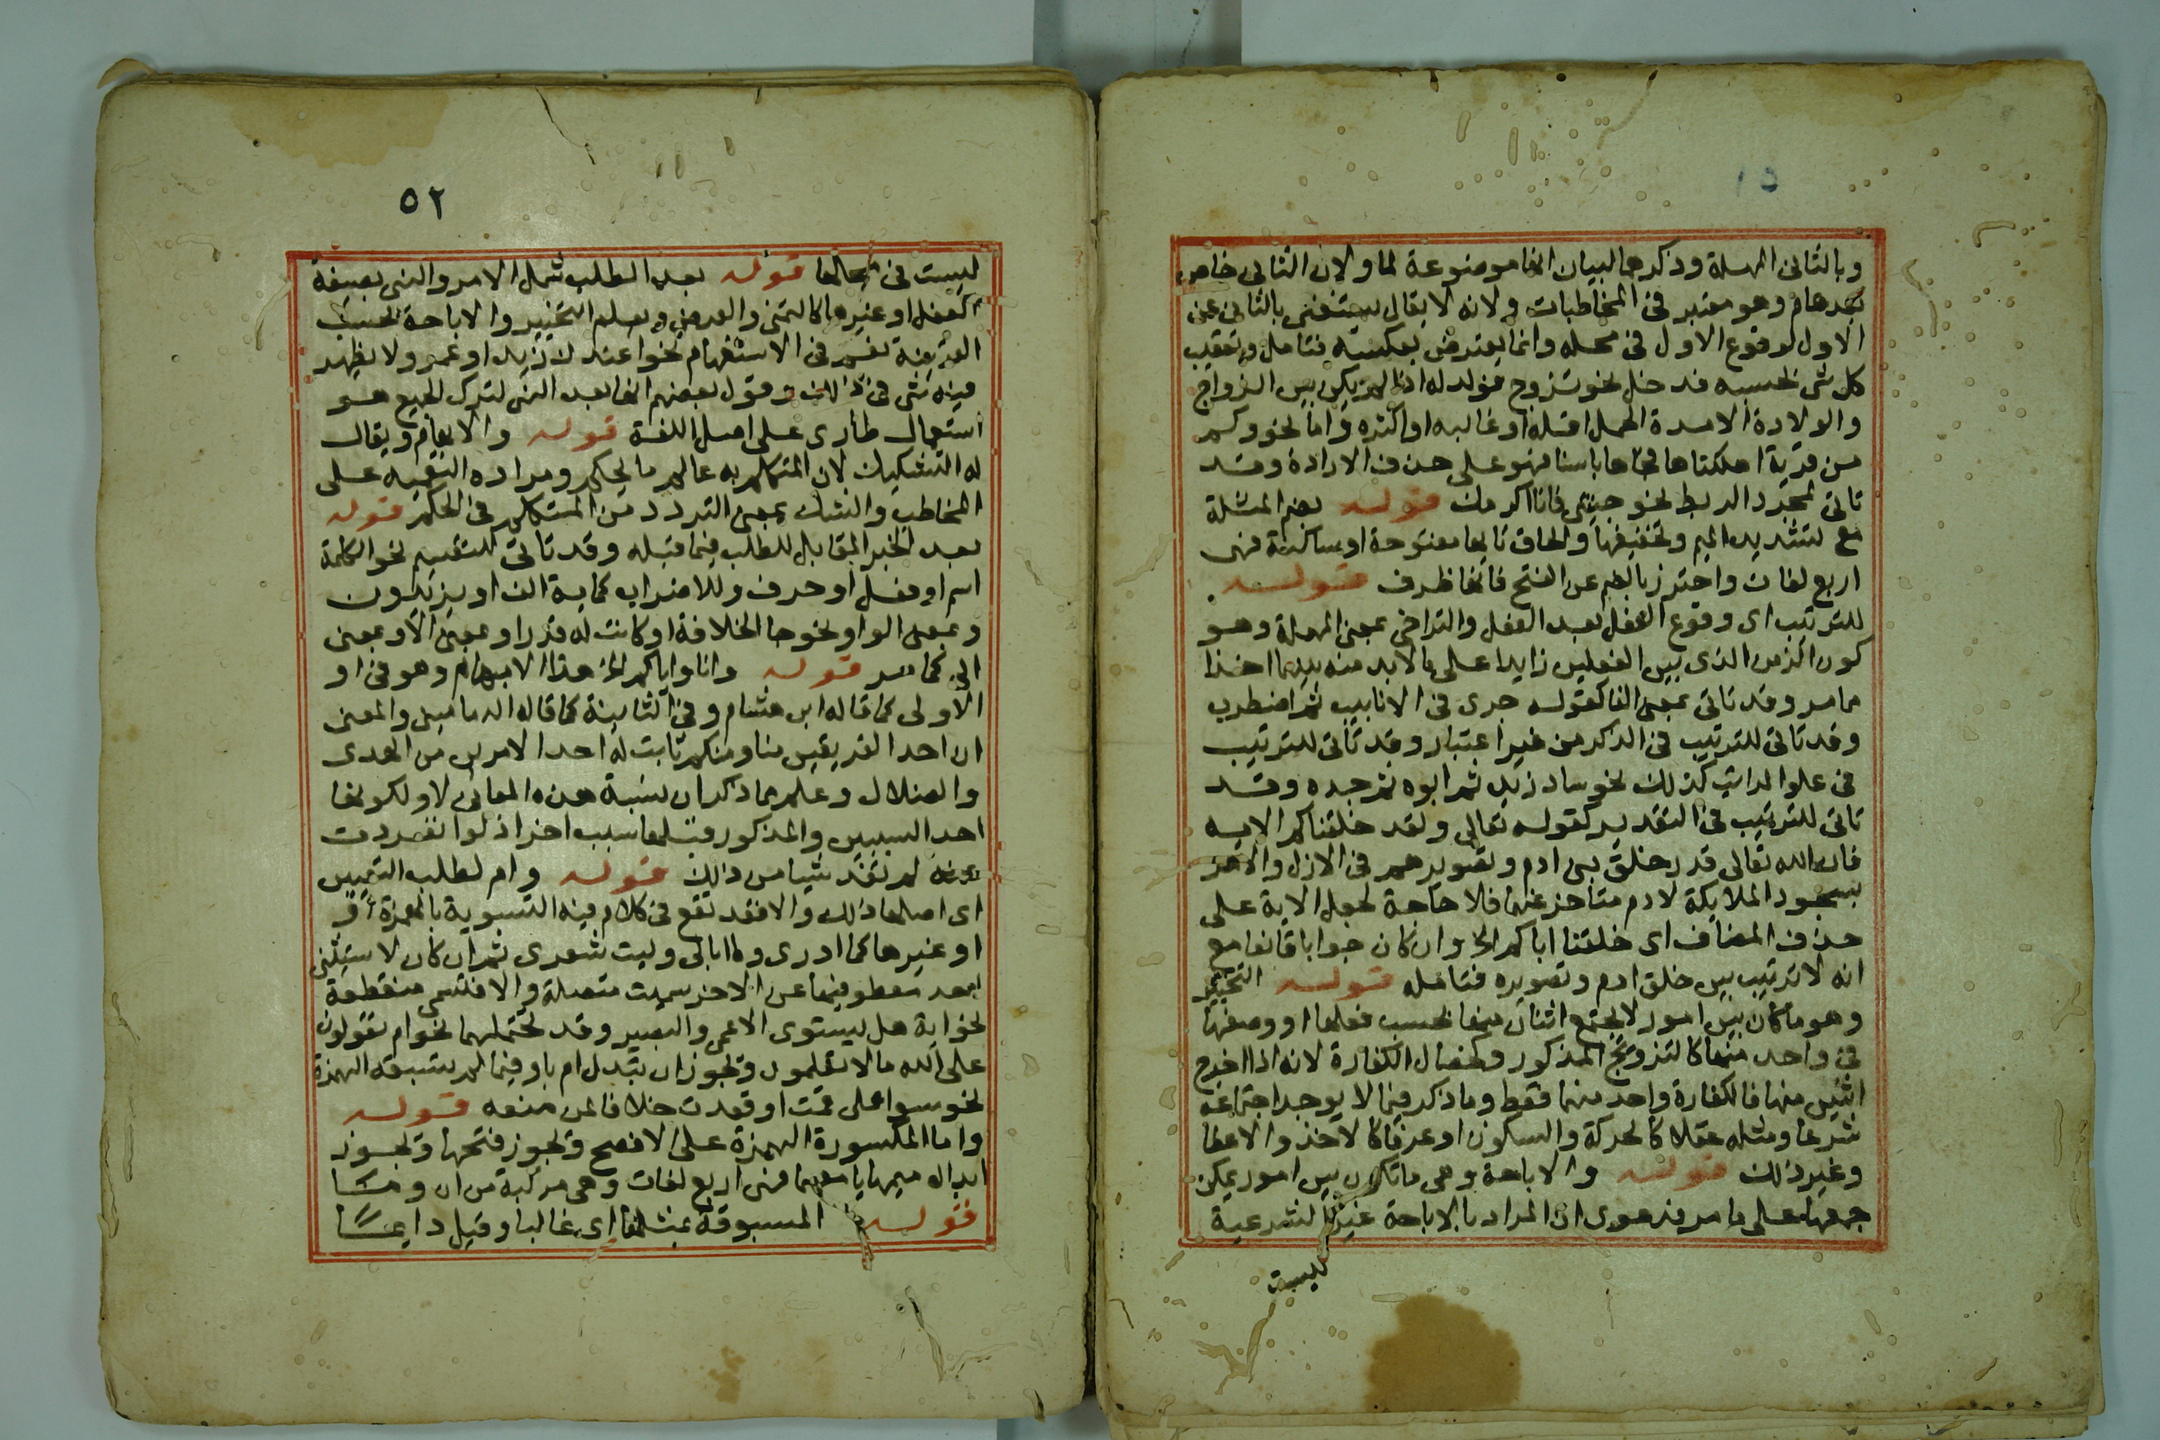 ١٥
وبالثانى المهلة وذكرها لبيان انها موضوعة لها ولان الثانى خاص
بعد عام وهو معتبر فى المخاطبات ولانه لا يقال يستغنى بالثانى عن
الاول لوقوع الاول فى محله وانما يعترض بعكسه فتامل وتعقيب
كل شى بحسبه فدخل نحو تزوج فولد له اذا لم يكن بين الزواج
والولادة الا مدة الحمل اقله او غالبه او اكثره واما نحو وكم
من قرية اهلكناها فجاها باسنا فهو على حذف الارادة وقد
تاتى لمجرد الربط نحو جيتنى فانا اكرمك قوله بضم المثلثة
مع تشديد الميم وتخفيفها والحاق تا بها مفتوحة او ساكنة فهى
اربع لغات واحترز بالضم عن الفتح فانها ظرف قوله
للترتيب اى وقوع الفعل بعد الفعل والتراخى بمعنى المهلة وهو
كون الزمن الذى بين الفعلين زايدا على ما لابد منه بينهما اخذا
مما مر وقد تاتى بمعنى الفا كقوله جرى فى الانابيب ثم اضطرب
وقد تاتى للترتيب فى الذكر من غير اعتبار وقد تاتى للترتيب
فى علو المراتب كذلك نحو ساد زيد ثم ابوه ثم جده وقد
تاتى للترتيب فى التقدير كقوله تعالى ولقد خلقناكم الايه
فان الله تعالى قدر خلق بنى ادم وتصويرهم فى الازل والامر
بسجود الملايكة لادم متاخر عنها فلا حاجة لجعل الاية على
حذف المضاف اى خلقنا اباكم الخ وان كان جوابا قانعا مع
انه لا ترتيب بين خلق ادم وتصويره فتامله قوله التخيير
وهو ما كان بين امور لا يجتمع اثنان منها بحسب فعلها او وصفها
فى واحد منها كالتزويج المذكور وكخصال الكفارة لانه اذا اخرج
اثنين منها فالكفارة واحد منهما فقط وما ذكر فيما لا يوجد اجتماعه
شرعا ومثله عقلا كالحركة والسكون او عرفا كالاخذ والاعطا
وغير ذلك قوله والاباحة وهى ما تكون بين امور يمكن
جمعها على ما مر فدعوى ان المراد بالاباحة غير الشرعية
ليست
٥٢
ليست فى محالها قوله بعد الطلب شمل الامر والنهى بصيغة
افعل او غيرها كالتمنى والعرض ويعلم التخيير والاباحة بحسب
القرينة نعم فى الاستفهام نحو اعندك زيد او عمرو لا يظهر
فيه شى فى ذلك وقول بعضهم انها بعد النهى لترك الجميع هو
استعمال طارى على اصل اللغة قوله والابهام ويقال
له التشكيك لان المتكلم به عالم ما يحكم ومراده التعميه على
المخاطب والشك بمعنى التردد من المتكلم فى الحكم قوله
بعد الخبر المقابل للطلب فيما قبله وقد تاتى للتقسيم نحو الكلمة
اسم او فعل او حرف وللاضراب كماية الف او يزيدون
وبمعنى الواو نحو جا الخلافة او كانت له قدرا وبمعنى الا وبمعنى
الى كما مر قوله وانا واياكم الخ هذا الابهام وهو فى او
الاولى كما قاله ابن هشام وفى الثانية كما قاله الدمامينى والمعنى
ان احد الفريقين منا ومنكم ثابت له احد الامرين من الهدى
والضلال وعلم بما ذكر ان نسبة هذه المعانى لاو لكونها
احد السببين والمذكور قبلها سبب اخر اذ لو انفردت
عنه لم تفد شيا من ذلك قوله وام لطلب التعيين
اى اصلها ذلك والا فقد تقع فى كلام فيه التسوية بالهمزة او
او غيرها كما ادرى وما ابالى وليت شعرى ثم ان كان لا يستغنى
احد معطوفيها عن الاخر سميت متصلة والا فتسمى منقطعة
نحو اية هل يستوى الاعمى والبصير وقد تحتملهما نحو ام تقولون
على الله ما لا تعلمون وتجوز ان تبدل ام باو فيما لم يسبقه الهمزة
نحو سوا على قمت او قعدت خلافا لمن منعه قوله
واما المكسورة الهمزة على الافصح وتجوز فتحها وتجوز
ابدال ميمها يا معهما فهى اربع لغات وهى مركبة من ان وما
قوله المسبوقة بمثلها اى غالبا وقيل دايما